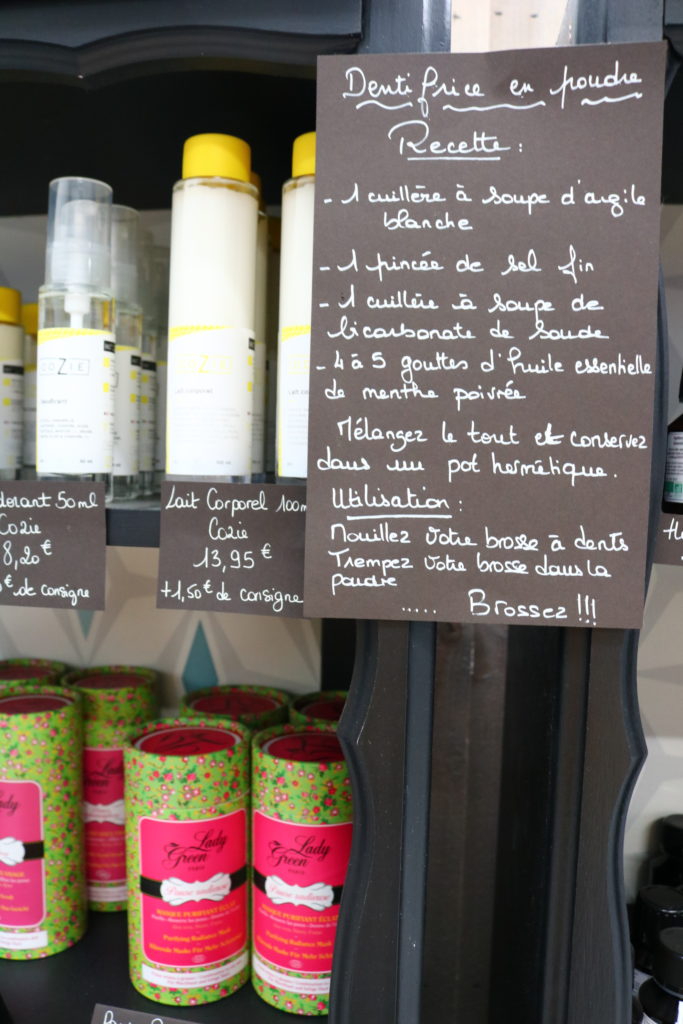 Dentifrice en poudre
Recette :
- 1 cuillère à soupe d'argile
blanche
- 1 pincée de sel fin
- 1 cuillère à soupe de
bicarbonate de soude
- 4 à 5 gouttes d'huile essentielle
de menthe poivrée
Mélangez le tout et conservez
dans un pot hermétique.
Utilisation :
Mouillez votre brosse à dents
Trempez votre brosse dans la
poudre
..... Brossez !!!
COZIE
COZIE
Lait corporel
50ml
Cozie
8,20€
€ de consigne
Lait Corporel 100m
Cozie
13,95€
+1,50€ de consigne
Lady
Lady
Green
PARIS
MASQUE PURIFIANT ÉCLAT
Purifying Radiance Mask
Lady
Green
MASQUE PURIFIANT ÉCLA
Purifying Radiance Mask